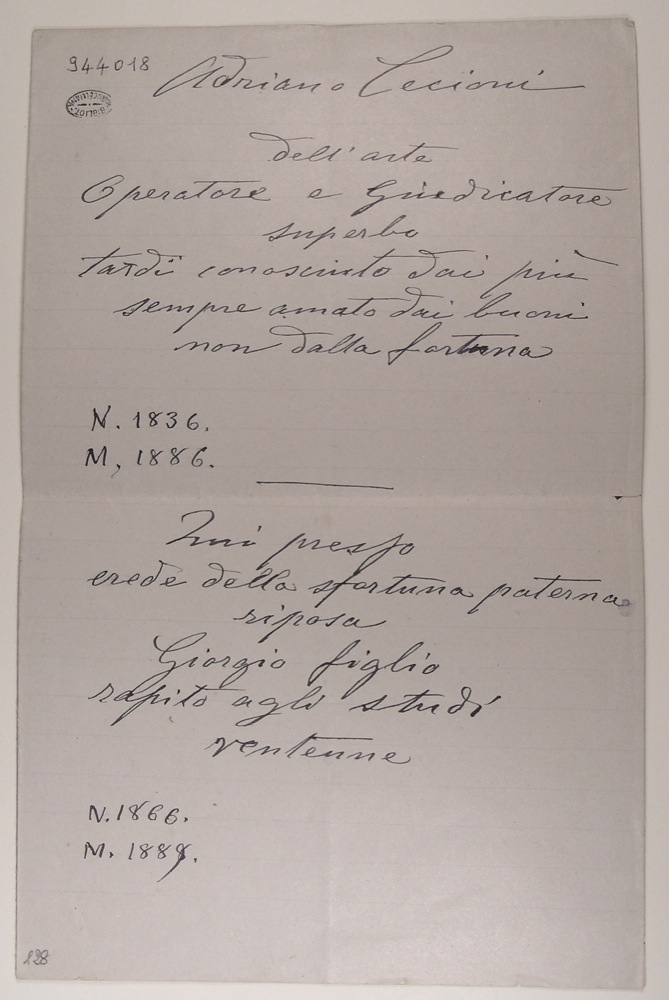 944018
BIBLIOT. MARUCELLIANA
Adriano Cecioni
dell'arte
Operatore e Giudicatore
superbo
tardi conosciuto dai più
sempre amato dai buoni
non dalla fortuna
N. 1836.
M, 1886.
Qui presso
erede della sfortuna paterna
riposa
Giorgio figlio
rapito agli studi
ventenne
N. 1866.
M. 1889.
128